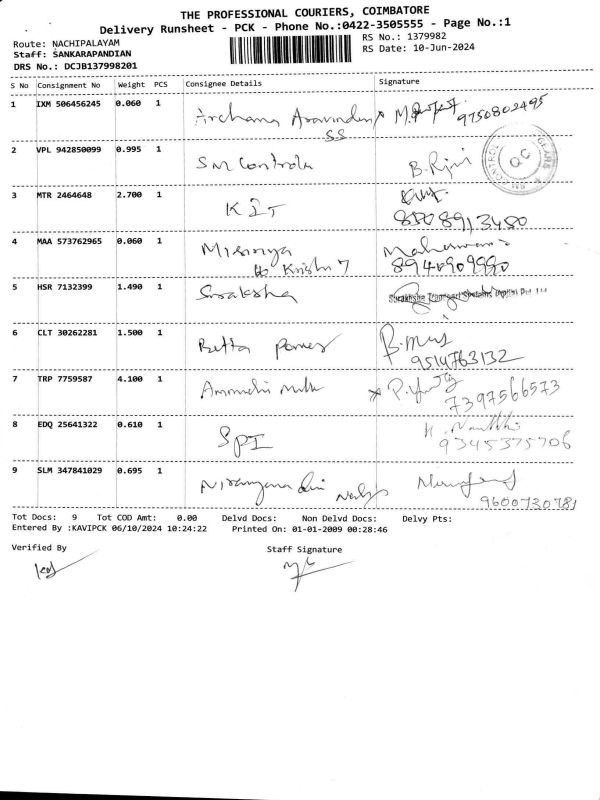 THE PROFESSIONAL COURIERS, COIMBATORE
Delivery Runsheet - PCK - Phone No.:0422-3505555 - Page No.:1
Route: NACHIPALAYAM
Staff: SANKARAPANDIAN
DRS No.: DCJB137998201
RS No.: 1379982
RS Date: 10-Jun-2024
S No Consignment No Weight PCS Consignee Details Signature
1 IXM 506456245 0.060 1 Archana Aravindan 9750802495
SS
2 VPL 942850099 0.995 1 SM Controls B.
QC
3 MTR 2464648 2.700 1 KIT
8508913480
4 MAA 573762965 0.060 1
8940909990
5 HSR 7132399 1.490 1 Suraksha
6 CLT 30262281 1.500 1 Betta
9514763132
7 TRP 7759587 4.100 1 Milk
7397566573
8 EDQ 25641322 0.610 1 SPI
9345375706
9 SLM 347841029 0.695 1
9600730781
Tot Docs: 9 Tot COD Amt: 0.00 Delvd Docs: Non Delvd Docs: Delvy Pts:
Entered By :KAVIPCK 06/10/2024 10:24:22 Printed On: 01-01-2009 00:28:46
Verified By Staff Signature